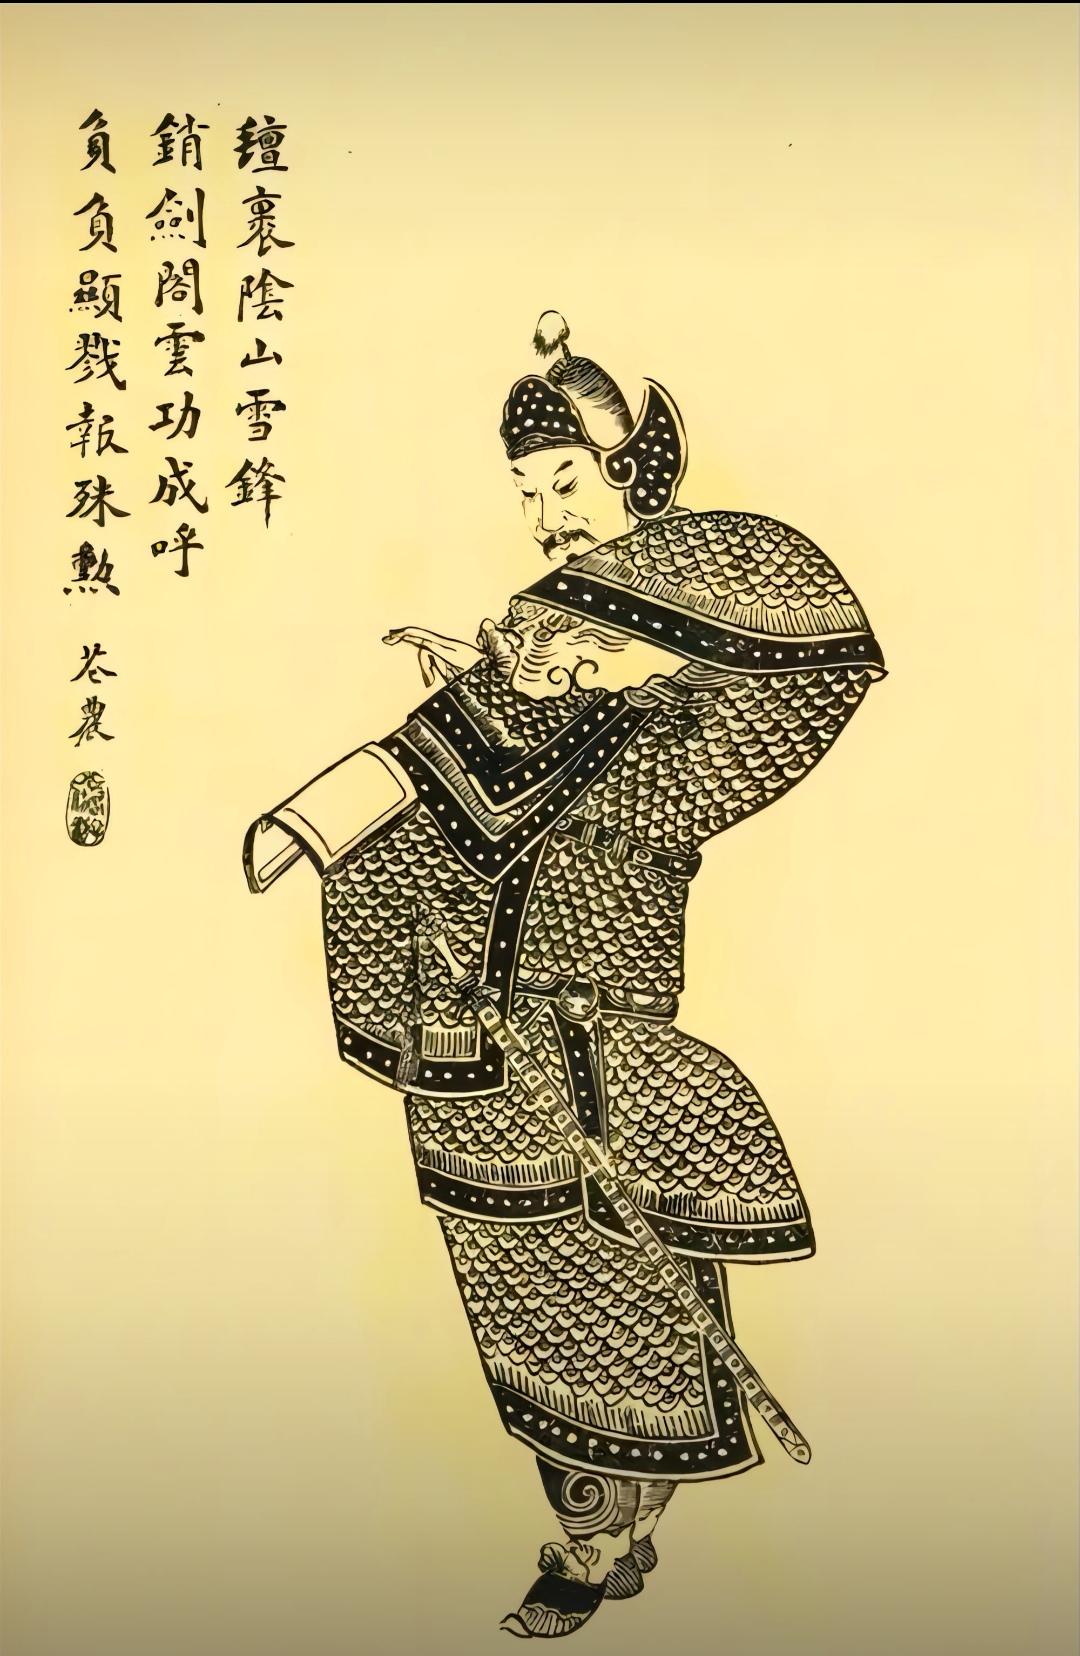 氊裹陰山雪鋒
銷劍閣雲功成呼
負負顯戮報殊勲
農